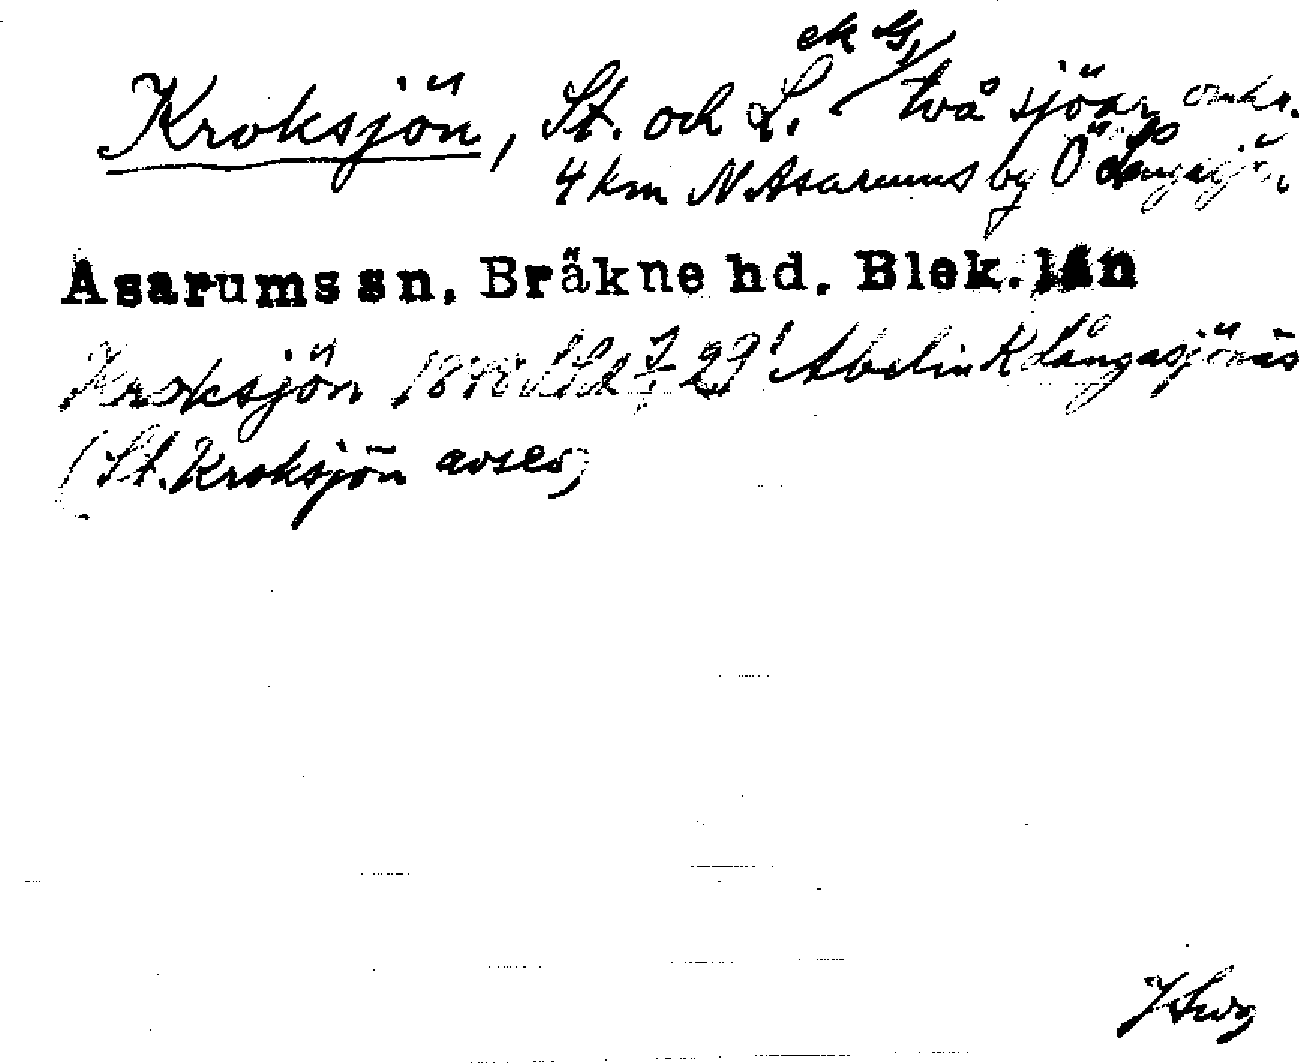 ek G/
Kroksjön, St. och L. två sjöar omkr.
4 km N Asarums by Ö Långasjön
Asarums sn. Bräkne hd. Blek. län
Kroksjön 1848 29' Abelin K Långasjönäs
(St. Kroksjön avses)